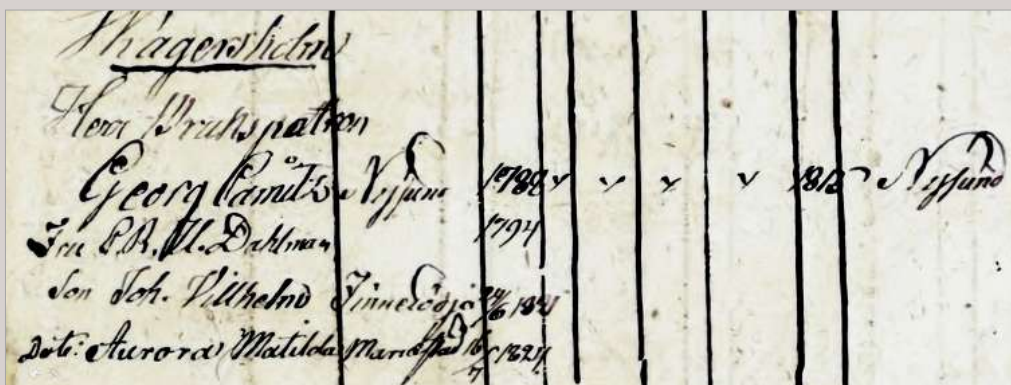 Wagersholm
Herr Bruks patron
Georg Camitz Nysund 1788 1815 Nysund
Fru P. R. U. Dahlman 1794
Son Joh. Villhelm 24/6
Dott: Aurora Matilda Mariestad 16/7 1824